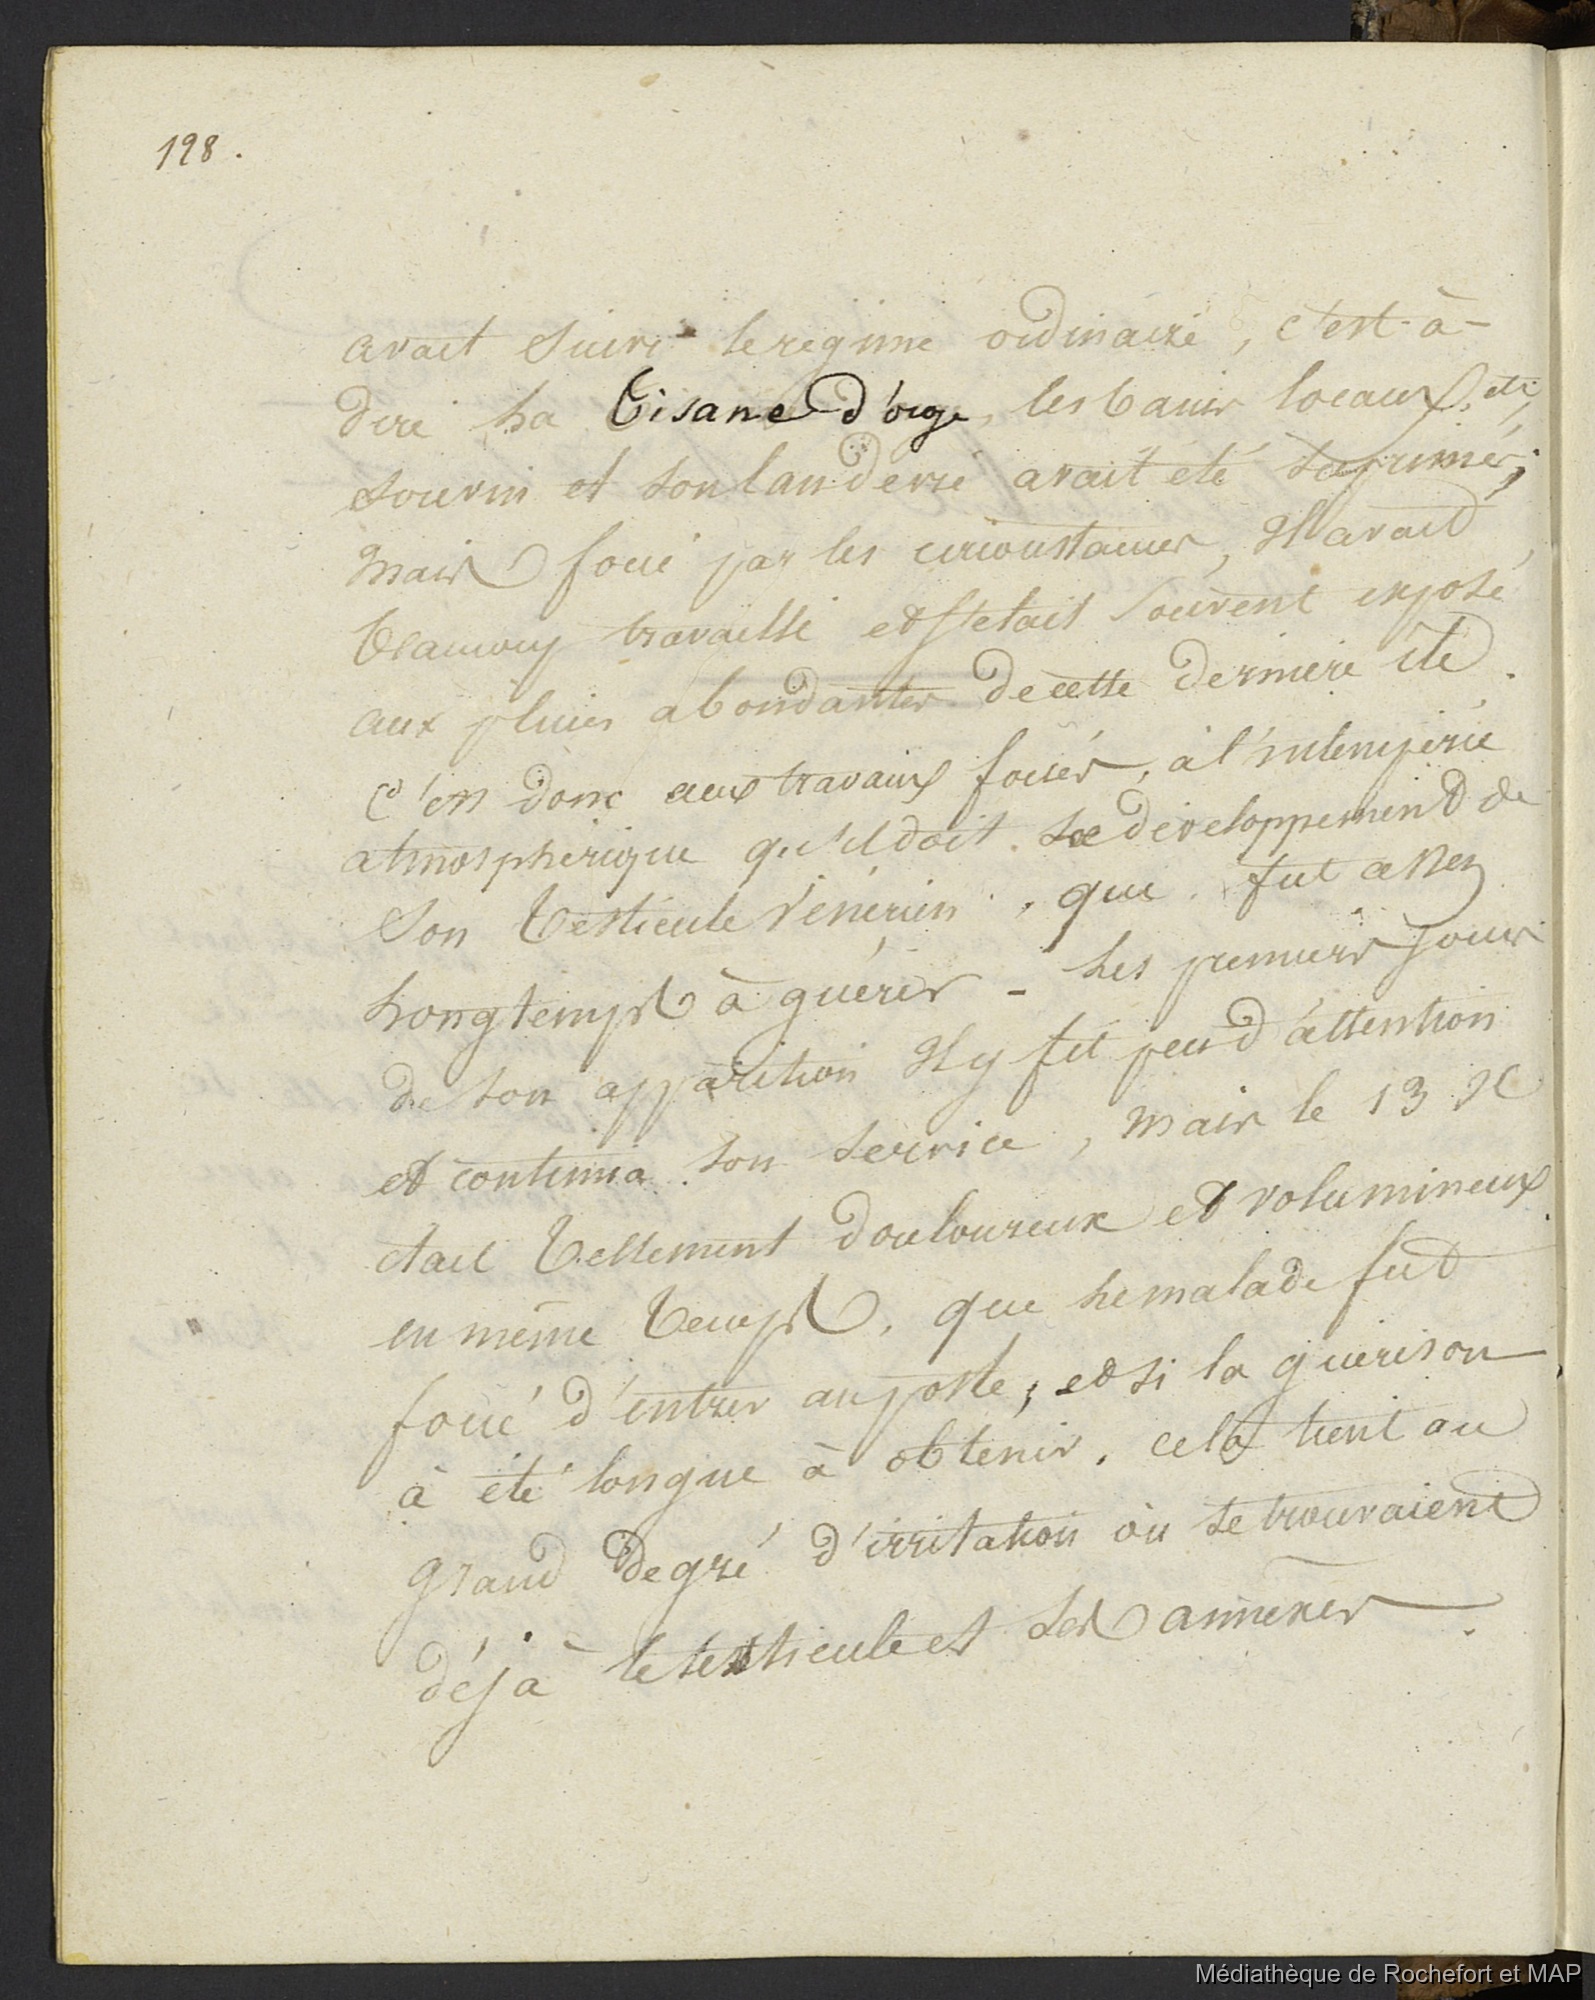 128.
avait suivi le regime ordinaire, c'est-à-
dire la Tisane d'orge, les bains locaux, etc,
Son vin et son landerie avait été suprimés;
mais forcé par les circonstances, Il avait
beaucoup travaillé et s'etait souvent exposé
aux pluies abondantes de cette derniere été.
C'est donc aux travaux forcés, à l'intempérie
atmospherique qu'il doit le developpement de
Son Testicule Vénérien, que fut assez
longtemps à guérir - les premiers jours
de son apparition Il y fit peu d'attention
et continua son service, mais le 13 Il
etait tellement douloureux et volumineux
en même temps, que le malade fut
forcé d'entrer au poste; et si la guérison
à été longue à obtenir, cela tient au
grand degré d'irritation où se trouvaient
déjà le testicule et ses annexes.
Médiathèque de Rochefort et MAP